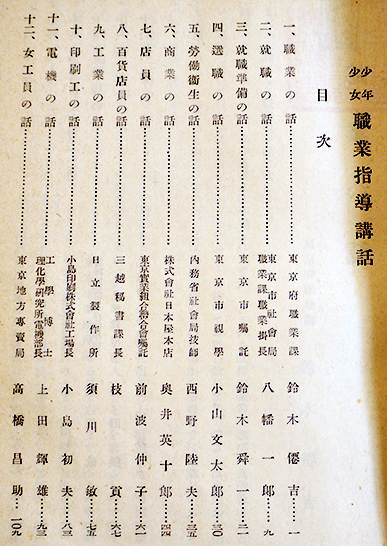 少年少女 職業指導講話
目次
一、職業の話 東京府職業課 鈴木僊吉 一
二、就職の話 東京市社會局職業課職業掛長 八幡一郎 九
三、就職準備の話 東京市囑託 鈴木舜一 二一
四、選職の話 東京市視學 小山文太郎 三〇
五、勞働衞生の話 內務省社會局技師 西野陸夫 三五
六、商業の話 株式會社日本屋本店 奧井英十郎 四四
七、店員の話 東京實業組合聯合會囑託 前波仲子 六一
八、百貨店員の話 三越秘書課長 枝貢 六七
九、工業の話 日立製作所 須川敏 七五
十、印刷工の話 小島印刷株式會社工場長 小島初夫 八三
十一、電機の話 工學博士 理化學硏究所電機部長 上田輝雄 九三
十二、女工員の話 東京地方專賣局 高橋昌助 一〇九